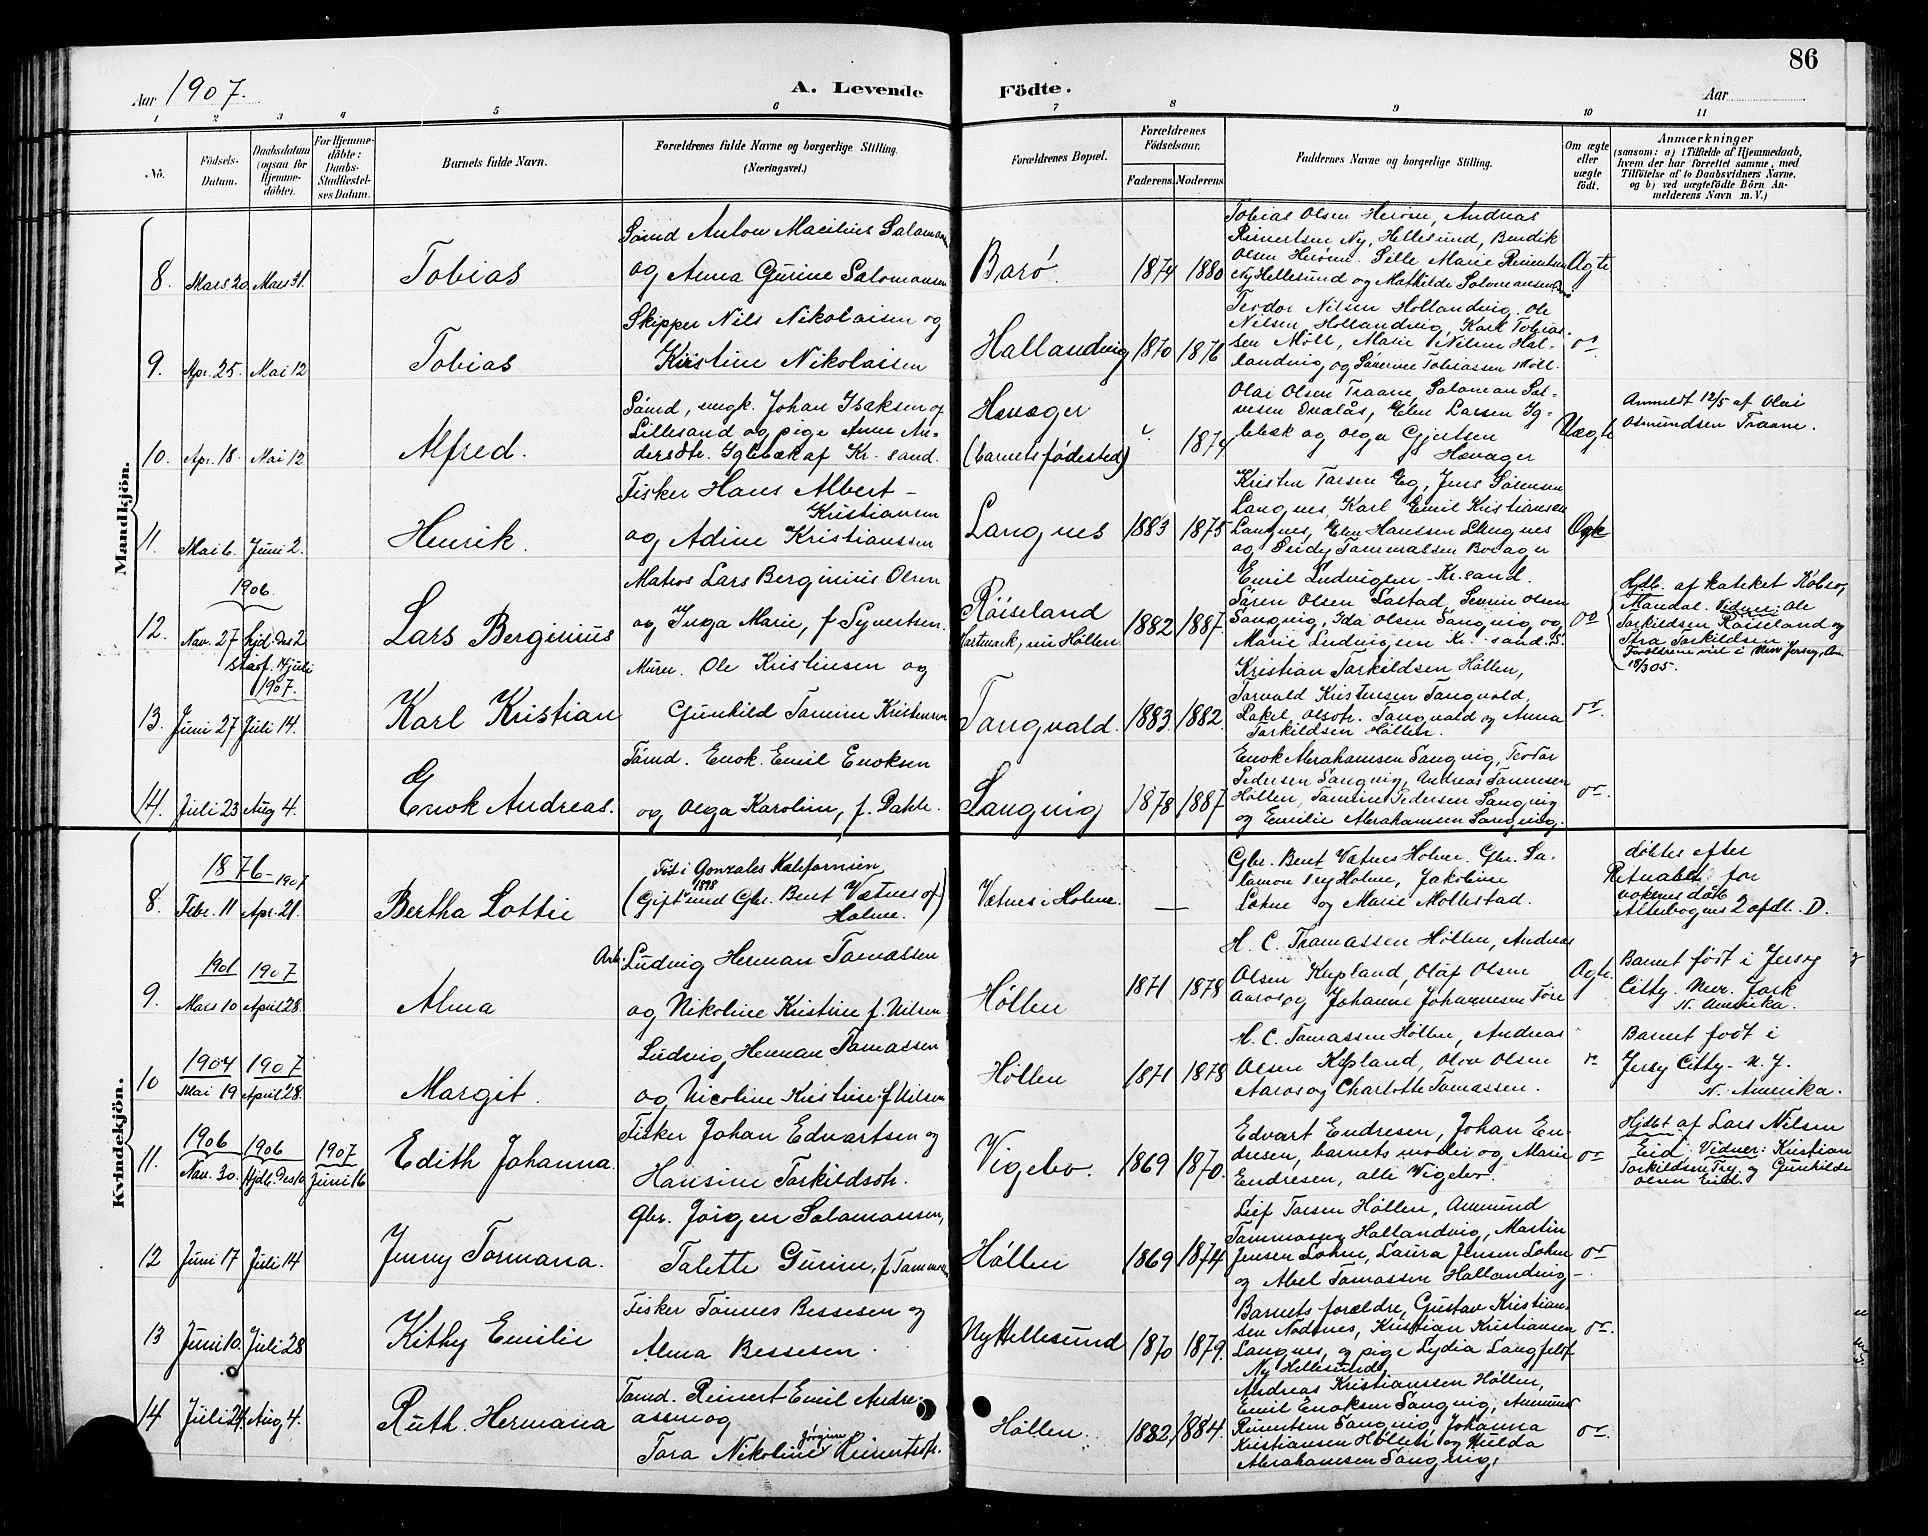 86
Aar 1907.
A. Levende Födte.
Aar
1 2 3 4 5 6 7 8 9 10 11
Nö.
Födsels-Datum.
Daabsdatum (ogsaa for Hjemmedöbte).
For Hjemmedöbte: Daabs-Stadfæstelses Datum.
Barnets fulde Navn.
Forældrenes fulde Navne og borgerlige Stilling. (Næringsvei.)
Forældrenes Bopæl.
Forældrenes Födselsaar.
Faderens. Moderens.
Faddernes Navne og borgerlige Stilling.
Om ægte eller uægte födt.
Anmærkninger
(saasom: a) i Tilfælde af Hjemmedaab, hvem der har forrettet samme, med Tilföielse af to Daabsvidners Navne. og b) ved uægtefödte Börn Anmelderens Navn m. V.)
Mandkjön.
8. Mars 20 Mars 31. Tobias
Sømd Anton Macilius Salamonsen
og Anna Gurine Salomansen
Barø 1874 1880
Tobias Olsen Herøen, Andreas
Reinertsen Ny, Hellesund, Bendik
Olsen Herøen. Sille Marie Reinertsen
Ny Hellesund og Mathilde Salomansen
Ægte
9. Apr. 25. Mai 12 Tobias
Skipper Nils Nikolaisen og
Kristine Nikolaisen
Hallandvig 1870 1876
Teodor Nilsen Hollandvig, Ole
Nilsen, Hollandvig, Karl Tobias-
sen Møll, Marie Nilsen Hal-
landvig og Tobiassen Møll.
10. Apr. 18. Mai 12 Alfred.
Sømd, ungk. Johan Isaksen af
Lillesand og pige Anne An-
dersdtr. Iglebæk af Kr.sand.
Høvåger
(barnets fødested) 1874
Olai Olsen Traane, Salaman Sal-
vesen Ovalås, Elen Larsen Ig-
lebæk og Olga Gjertsen
Høvåger
Uægte
Anmeldt 12/5 af Olai
Osmundsen Traane.
11. Mai 6. Juni 2. Henrik.
Fisker Hans Albert
Kristiansen
og Adine Kristianssen
Langnes 1883 1875
Kristen Tarsen Eg, Jens Sørensen
Langnes, Karl Emil Kristiansen
Langnes, Elen Hanssen Langnes
og Tammassen
Ægte
12. 1906 Nov. 27 Hjd. Des 2 stadf. 14 juli 1907.
Lars Berginius
Matros Lars Berginius Olsen
og Inga Marie, f. Syvertsen.
Røiseland
nu Høllen. 1882 1887.
Emil Ludvigsen Kr.sand.
Søren Olsen Søstad, Severin Olsen
Sangvig, Ida Olsen Sangvig og
Marie Ludvigsen Kr.sand. S.
Hjdb. af kateket
Mandal. Vidner: Ole
Torkildsen Røiseland og
Thea Torkildsen.
Forældrene viet i New Jersey, Am.
18/3 05.
13. Juni 27 Juli 14. Karl Kristian
Murer. Ole Kristensen og
Gunhild Tomine Kristensen
Tangvald. 1883 1882.
Kristian Torkildsen Høllen,
Torvald Kristensen Tangvald,
Rakel Olsdtr. Tangvald og Anna
Torkildsen Høllen.
14. Juli 23 Aug 4. Enok Andreas.
Tømd. Enok Emil Enoksen
og Olga Karoline, f. Dahle.
Sangvig 1878 1887
Enok Abrahamsen Sangvig, Teodor
Pedersen Sangvig, Andreas Tammesen
Høllen, Tamine Pedersen Sangvig
og Emilie Abrahamsen Sangvig.
Kvindekjön.
8. 1876 Febr. 11 1907 Apr. 21. Bertha Lottie
Fød i Gonzales Kalefornien
(Gift 1898 med Gbr. Bent Vætnes af
Holme.)
Vætnes i Holme. —
Gbr. Bent Vætnes Holme. Gbr. Sa-
lamon Try Holme, Jakobine
Lohne og Marie Møllestad.
døbtes efter
Ritualet for
voksnes dåb
Alterbogens 2 afdl. D.
9. 1901 Mars 10 1907 April 28. Alma
Arb. Ludvig Herman Tamassen
og Nikoline Kristine f. Nilsen
Høllen 1871 1878
H. C. Tamassen Høllen, Andreas
Olsen Kipland, Olaf Olsen
Aaros og Johanne Johannesen Tore
Ægte
Barnet født i Jersey
Citty. New. Jork
N. Amerika.
10 1904 Mai 19 1907 April 28. Margit.
Ludvig Herman Tamassen
og Nicoline Kristine f. Nilsen
Høllen 1871 1878
H. C. Tamassen Høllen, Andreas
Olsen Kipland, Olav Olsen
Aaros og Charlotte Tamassen.
Barnet født i
Jersy Citty - N. J.
N. Amerika.
11. 1906 Nov. 30. 1906 Hjdb. Des 10 1907 Juni 16 Edith Johanna.
Fisker Johan Edvartsen og
Hansine Torkildsdtr.
Vigebo. 1869 1870.
Edvart Endresen, Johan En-
dresen, barnets moder og Marie
Endresen, alle Vigebo.
Hjdbt af Lars Nilsen
Eid. Vidner: Kristian
Torkildsen Try og Gunhilde
Olsen Eid.
12 Juni 17 Juli 14 Jenny Tormana.
Gbr. Jørgen Salamonsen,
Talette Gurine, f. Tammesen
Høllen 1869 1874
Leif Tarsen Høllen, Anmund
Tammassen Hallandvig, Martin
Jensen Lohne, Laura Jensen Lohne
og Abel Tamassen Hallandvig
13 Juni 10. Juli 28 Kithy Emilie
Fisker Tønnes Bessesen og
Alma Bessesen.
Ny Hellesund 1870 1879.
Barnets forældre, Gustav Kristian-
sen Nodnes, Kristian Kristiansen
Langnes, og pige Lydia Langfeldt
Ny Hellesund.
14 Juli 24. Aug 4. Ruth. Hermana
Tømd. Reinert Emil Andre-
assen og
Tora Nikoline Jørgine Reinertsdtr.
Høllen. 1882 1884.
Andreas Kristianssen Høllen,
Emil Enoksen Sangvig, Anmund
Reinertsen Sangvig, Johanna
Kristiansen Høllen og Hulda
Abrahamsen Sangvig.